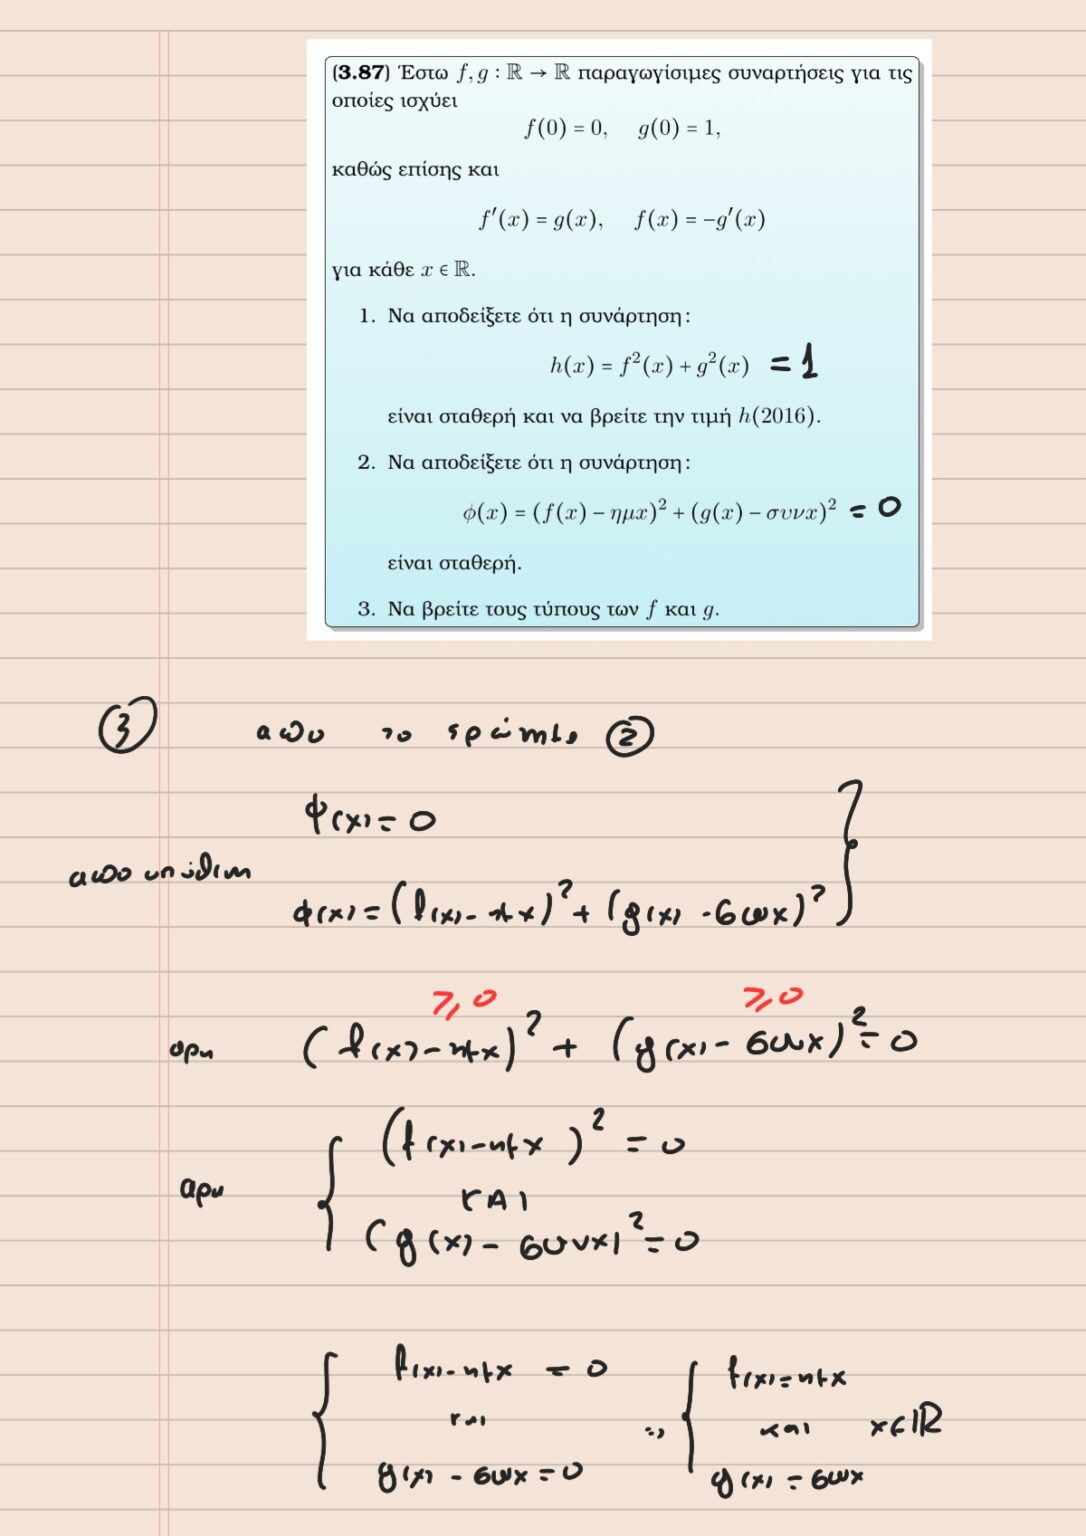 (3.87) Έστω f, g : ℝ → ℝ παραγωγίσιμες συναρτήσεις για τις
οποίες ισχύει
f(0) = 0, g(0) = 1,
καθώς επίσης και
f′(x) = g(x), f(x) = −g′(x)
για κάθε x ∈ ℝ.
1. Να αποδείξετε ότι η συνάρτηση:
h(x) = f²(x) + g²(x) = 1
είναι σταθερή και να βρείτε την τιμή h(2016).
2. Να αποδείξετε ότι η συνάρτηση:
ϕ(x) = (f(x) − ημx)² + (g(x) − συνx)² = 0
είναι σταθερή.
3. Να βρείτε τους τύπους των f και g.
③ απο το ερώτημα ②
φ(x) = 0
απο υπόθεση
φ(x) = (f(x) - ημx)² + (g(x) - συνx)²
≥0 ≥0
αρα (f(x) - ημx)² + (g(x) - συνx)² = 0
(f(x) - ημx)² = 0
αρα και
(g(x) - συνx)² = 0
f(x) - ημx = 0 f(x) = ημx
και ⇒ και x∈ℝ
g(x) - συνx = 0 g(x) = συνx